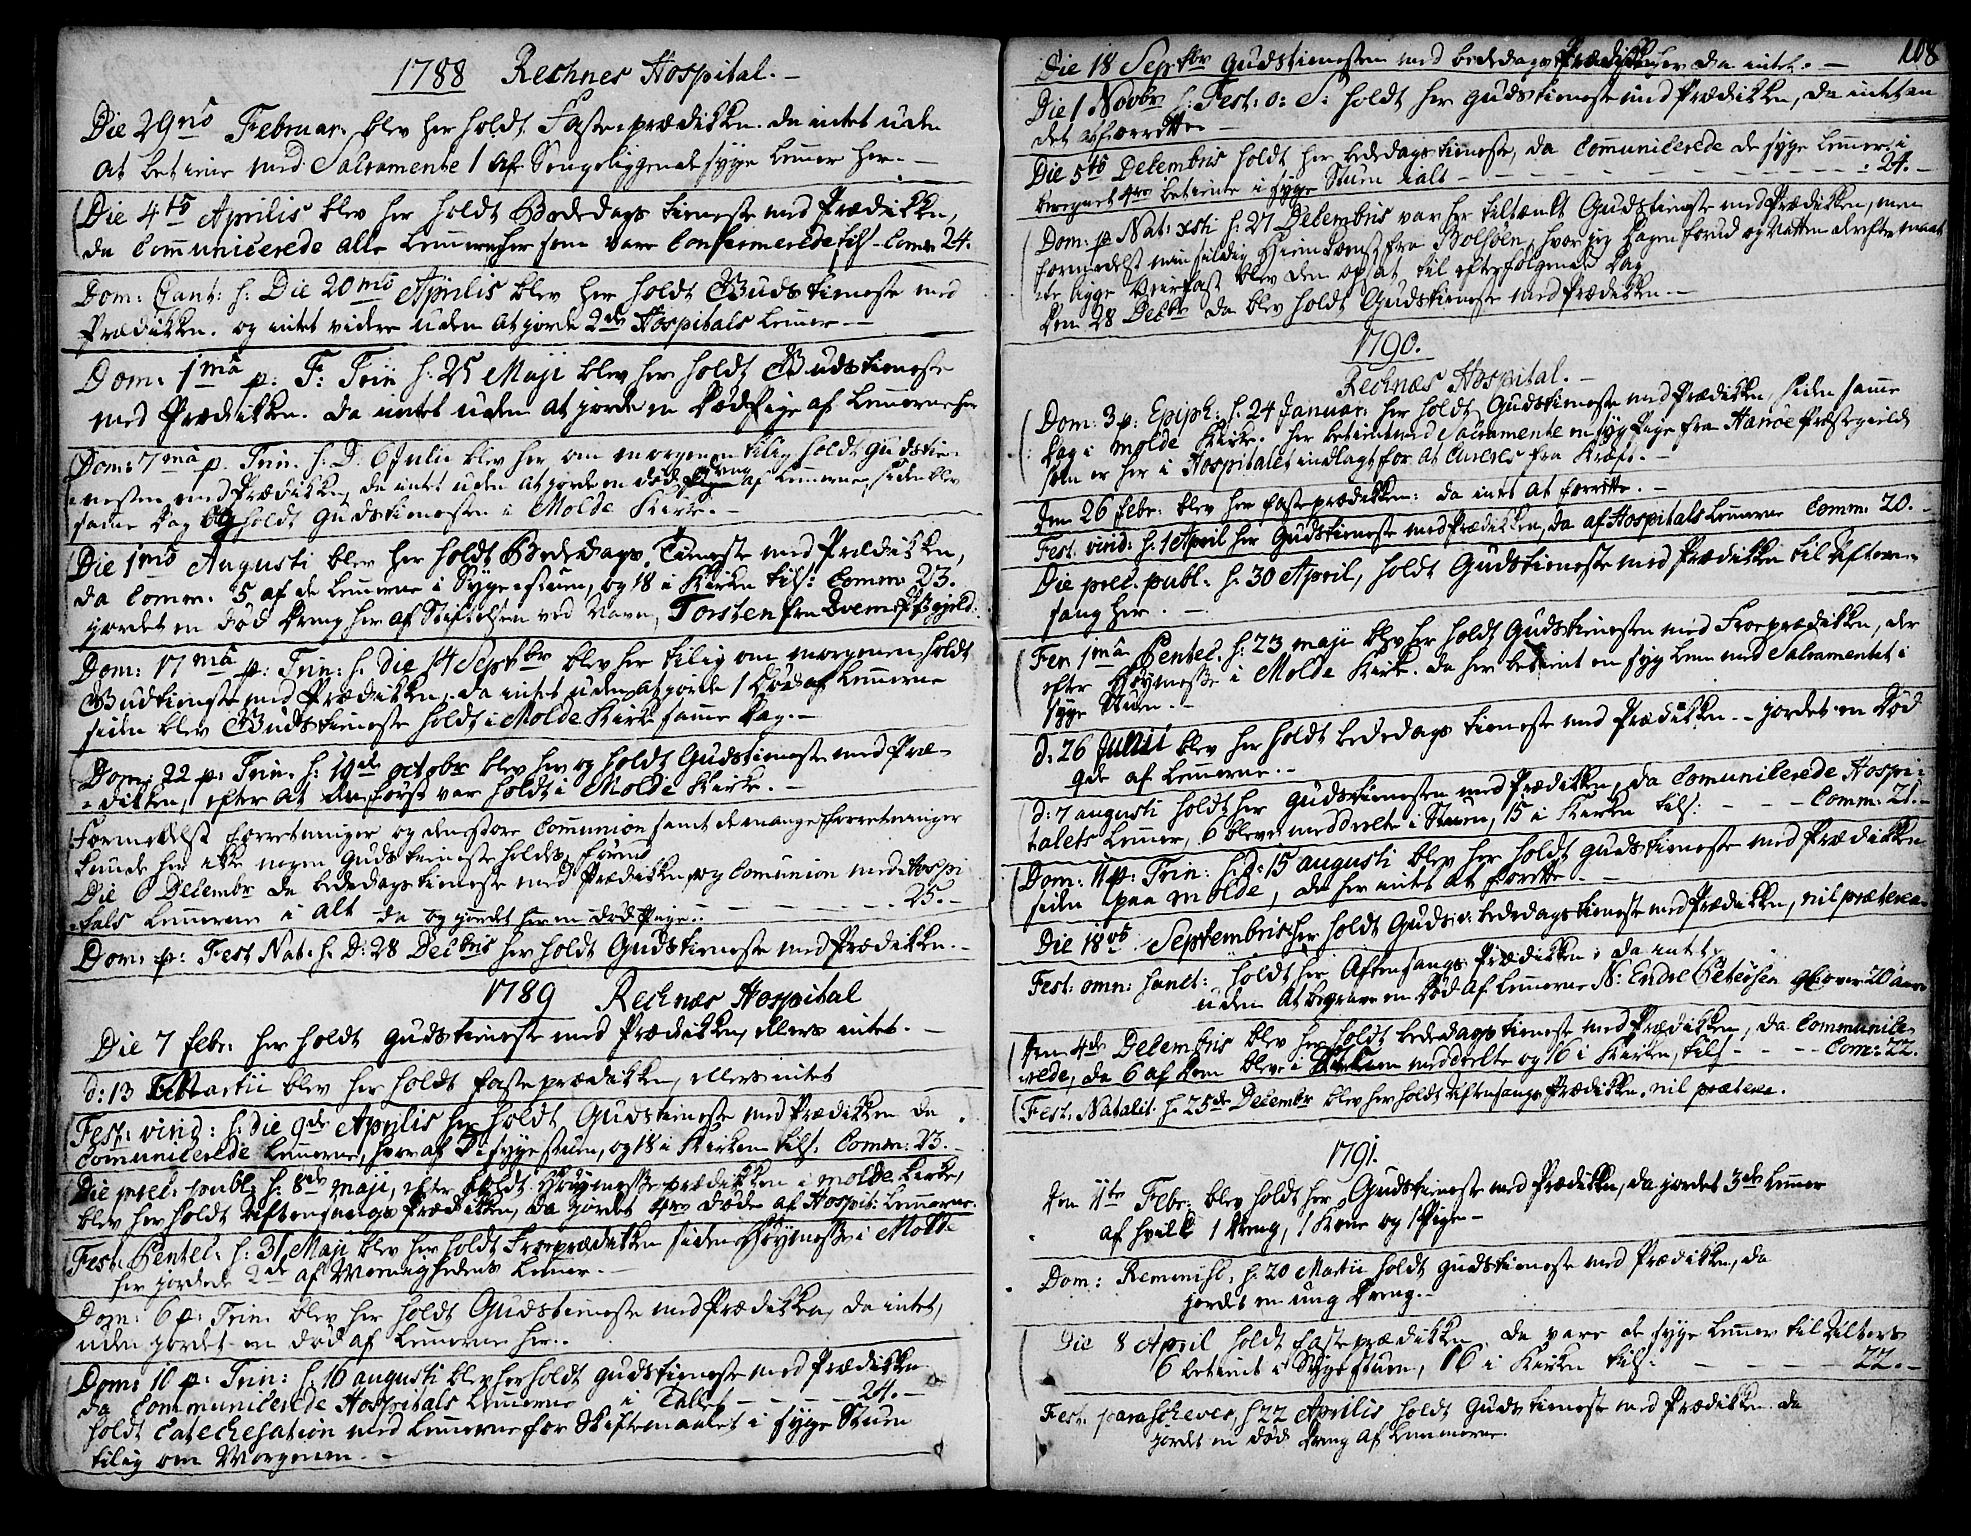 1788 Rechnes Hospital.-
Die 29no Februar. blev her holdt Faste-prædikken. da intet uden
at betiene med Sacramente 1 af Sengeliggende syge Lemer her.-
Die 4to Aprilis blev her holdt Bededags tieneste med Prædikken,
da Com̄unicerede alle Lemerne her som vare Confirmerede, tils. Comm: 24.
Dom: Cant: h: Die 20mo Aprilis blev her holdt Gudstieneste med
Prædikken. og intet videre uden at jorde 2de Hospitals Lemer.-
Dom: 1ma p: F: Trin h. 25 Maji blev her holdt Gudstieneste
med Prædikken. da intet uden at jorde en død Pige af Lemerne her
Dom: 7ma p. Trin. h. D. 6 Julii blev her om morgenen tilig holdt Gudstie-
nesten med Prædikken, da intet uden at jorde en død dreng af Lemerne, siden blev
same Dag og holdt Gudstienesten i Molde Kirke.-
Die 1mo Augusti blev her holdt Bededags Tieneste med Prædikken,
da Comm: 5 af de Lemerne i Syge-stuen, og 18 i Kirken tils: Comm: 23.
jordet en død Dreng her af Stiftelsen ved Navn, Torsten fra
Dom: 17ma p: Trin: h: die 14 Septbr blev her tilig om morgenen holdt
Gudtieneste med Prædikken, da intet uden at jorde 1 Død af Lemerne
siden blev Gudstieneste holdt i Molde Kirke samme Dag.-
Dom: 22 p: Trin. h: 19de octobr blev her og holdt Gudstieneste med Præ-
dikken, efter at den først var holdt i Molde Kirke.-
Formedelst forretninger og den store Com̄union samt de mange forretninger
kunde her ikke nogen Gudstieneste holdes, førend
Die 6 Decembr da bededagstieneste med Prædikken, og Com̄union med Hospi
tals Lemerne i Alt - - - 25.-
da og jordet her en død Pige.
Dom: p: Fest Nat: h. D: 28 Decbris her holdt Gudstieneste med Prædikken.-
1789 Rechnæs Hospital
Die 7 febr: her holdt Gudstieneste med Prædikken, ellers intet.-
d: 13 Martii blev her holdt faste prædikken, ellers intet
Fest: virid: h: die 9de Aprilis her holdt Gudstieneste med Prædikken da
Com̄unicerede Lemerne, hvoraf 5 i syge stuen, og 18 i Kirken tils: Comm: 23.-
Die prec: publ: h: 8de maji, efter holdt Høymesse prædikken i molde kirke,
blev her holdt Aftensangs Prædikken, da jordet 4re døde af Hospit: Lemerne.
Fest: Pentec: h: 31 Maji blev her holdt Froeprædikken siden Høymesse i Molde
her jordede 2de af Lemer.-
Dom: 6 p: Trin. blev her holdt Gudstieneste med Prædikken, da intet,
uden jordet en død af Lemerne her.-
Dom: 10 p: Trin: h: 16 augusti blev her holdt Gudstieneste med Prædikken
da Com̄unicerede Hospitals Lemerne i Tallet - - - 21.-
holdt Catechesation med Lemerne for Skiftemaalet i syge Stuen
tilig om Morgenen.-
108
Die 18 Septbr Gudstienesten med bededags Prædikken, her da intet.-
Die 1 Novbr h: Fest: o: S: holdt her Gudstieneste med Prædikken, da intet an
det at forrette -
Die 5te Decembris holdt her bededags tieneste, da Com̄unicerede de syge Lemer i
beregnet 4re betiente i syge Stuen i alt - - - 24.-
Dom: p Nat: xsti h: 27 Decembris var her tiltænkt Gudstieneste med Prædikken, men
formedelst min sildig Hiemkomst fra Bolsøen, hvor jeg Dagen forud og Natten derefter maat
te ligge Veirfast blev den opsat til efterfølgende Dag
den 28 Decbr da blev holdt Gudstieneste med Prædikken.-
1790.
Rechnæs Hospital.-
Dom: 3 p: Epiph: h: 24 Januar: her holdt Gudstieneste med Prædikken siden samme
Dag i molde Kirke. her betient med Sacramente en syg Pige fra Harøe Præstegield
som er her i Hospitalet indlagt for at cureres fra Kræft.-
Den 26 febr: blev her fasteprædikken: da intet at forrette.-
Fest: virid: h: 1 April her Gudstieneste med Prædikken, da af Hospitals Lemerne Comm: 20.-
Die prec. publ. h: 30 April, holdt Gudstieneste med Prædikken til Aften-
sang her.-
Fer: 1ma Pentec. h: 23 maji blev her holdt Gudstienesten med Froeprædikken, der
efter Høymesse i Molde Kirke. da her betient en syg Lem med Sacramentet i
syge Stuen.-
d: 26 Junii blev her holdt bededags tieneste med Prædikken.- jordet en Død
af Lemerne.-
d: 7 augusti holdt her Gudstienesten med Prædikken, da Com̄unicerede Hospi-
talets Lemer, 6 bleve meddeelte i Stuen, 15 i Kirken tils: - - - Comm: 21.-
Dom: 11 p: Trin: h: D: 15 augusti blev her holdt Gudstieneste med Prædikken
siden paa molde, da her intet at forette.-
Die 18vo Septembris her holdt Gudst: bededagstieneste med Prædikken, nil præterea-
Fest: omn: sanct: holdt her Aftensangs Prædikken: da intet
uden at begrave en Død af Lemerne N: Endre Petersen over 20 aar
Den 4de Decembris blev her holdt bededagstieneste med Prædikken, da Communice-
rede, da 6 af Dem bleve i Stuen meddeelte og 16 i Kirken, tils - - - Com: 22.
Fest: Natalit: h: 25de Decembr blev her holdt Aftensangs Prædikken. nil præterea.
1791.
Den 11te Febr: blev holdt her Gudstieneste med Prædikken, da jordet 3de Lemer
af hvilke 1 Dreng, 1 Kone og 1 Pige-
Dom: Reminisc: h: 20 Martii holdt Gudstieneste med Prædikken, da
jordet en ung Dreng.-
Die 8 April holdt faste prædikken, da vare de syge Lemer til Alters
6 betient i Syge stuen, 16 i Kirken tils: - 22.-
Fest: parasceves, h 22 Aprilis holdt Gudstieneste med Prædikken. da
jordet en død Dreng af Lemmerne.